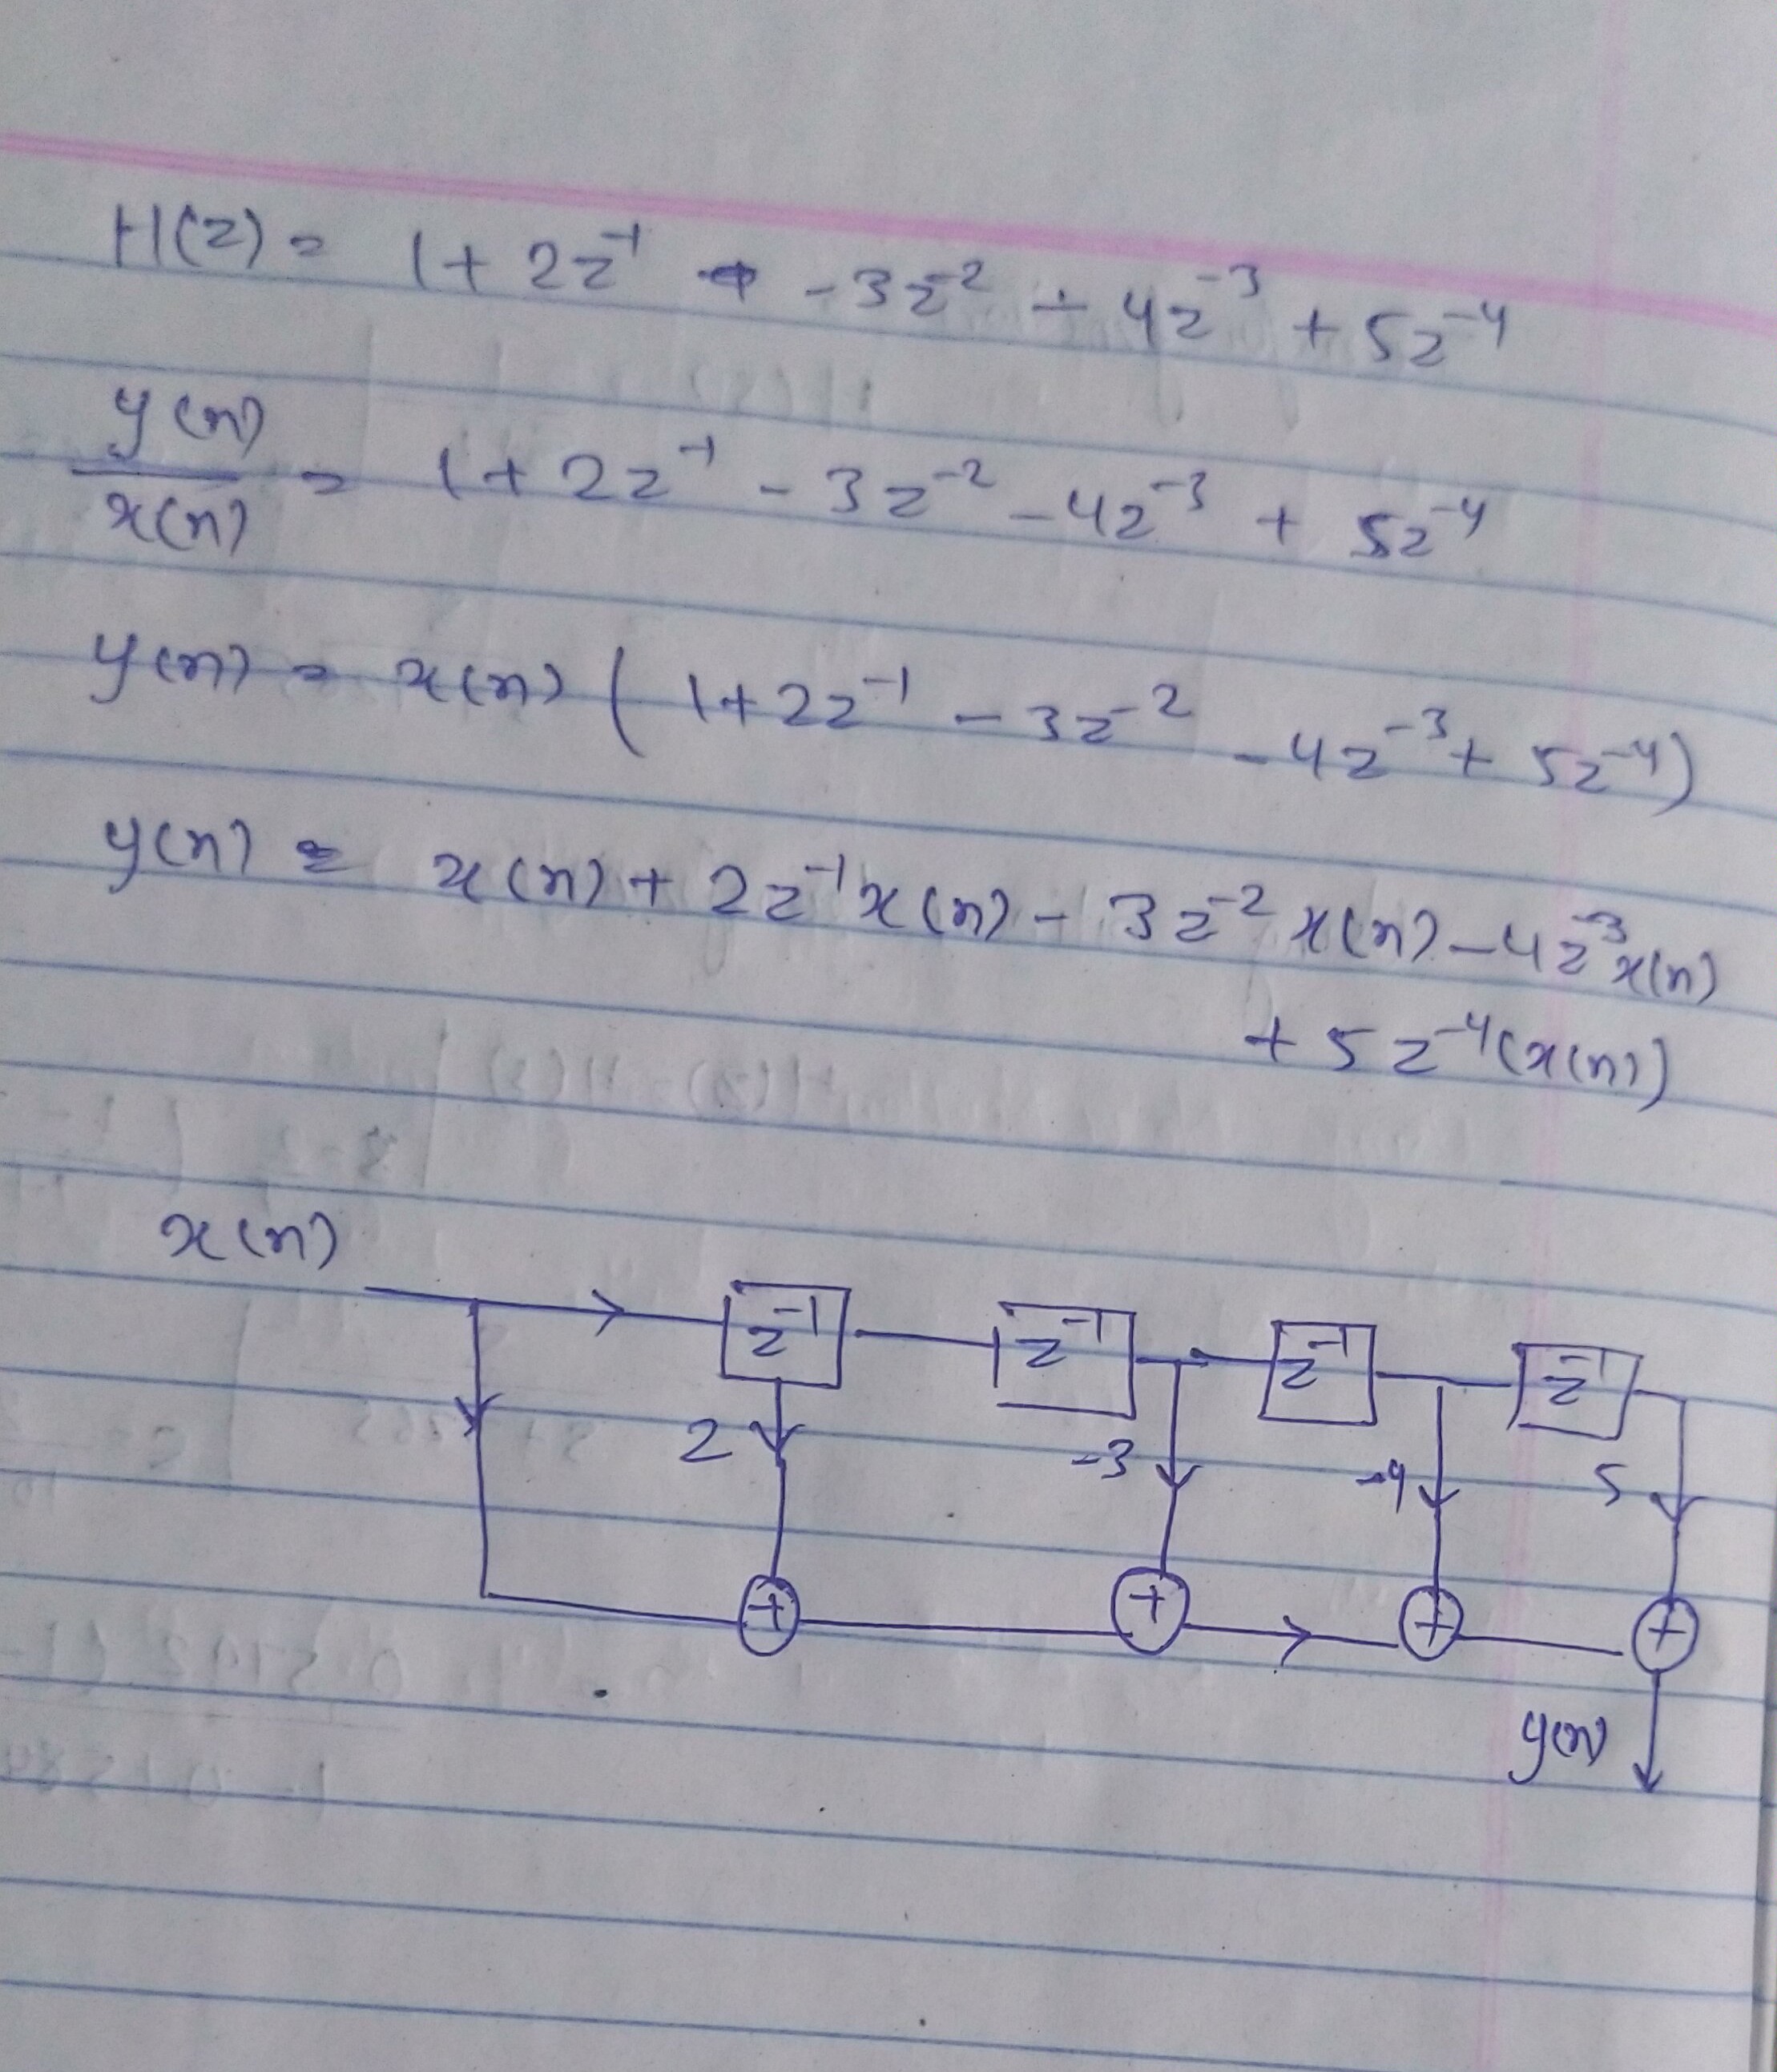 H(z) = 1 + 2z⁻¹ - 3z⁻² - 4z⁻³ + 5z⁻⁴
y(n)
x(n) = 1 + 2z⁻¹ - 3z⁻² - 4z⁻³ + 5z⁻⁴
y(n) = x(n) ( 1 + 2z⁻¹ - 3z⁻² - 4z⁻³ + 5z⁻⁴)
y(n) = x(n) + 2z⁻¹x(n) - 3z⁻² x(n) - 4z⁻³x(n)
+ 5z⁻⁴(x(n))
x(n)
z⁻¹ z⁻¹ z⁻¹ z⁻¹
2 -3 -4 5
+ + + +
y(n)